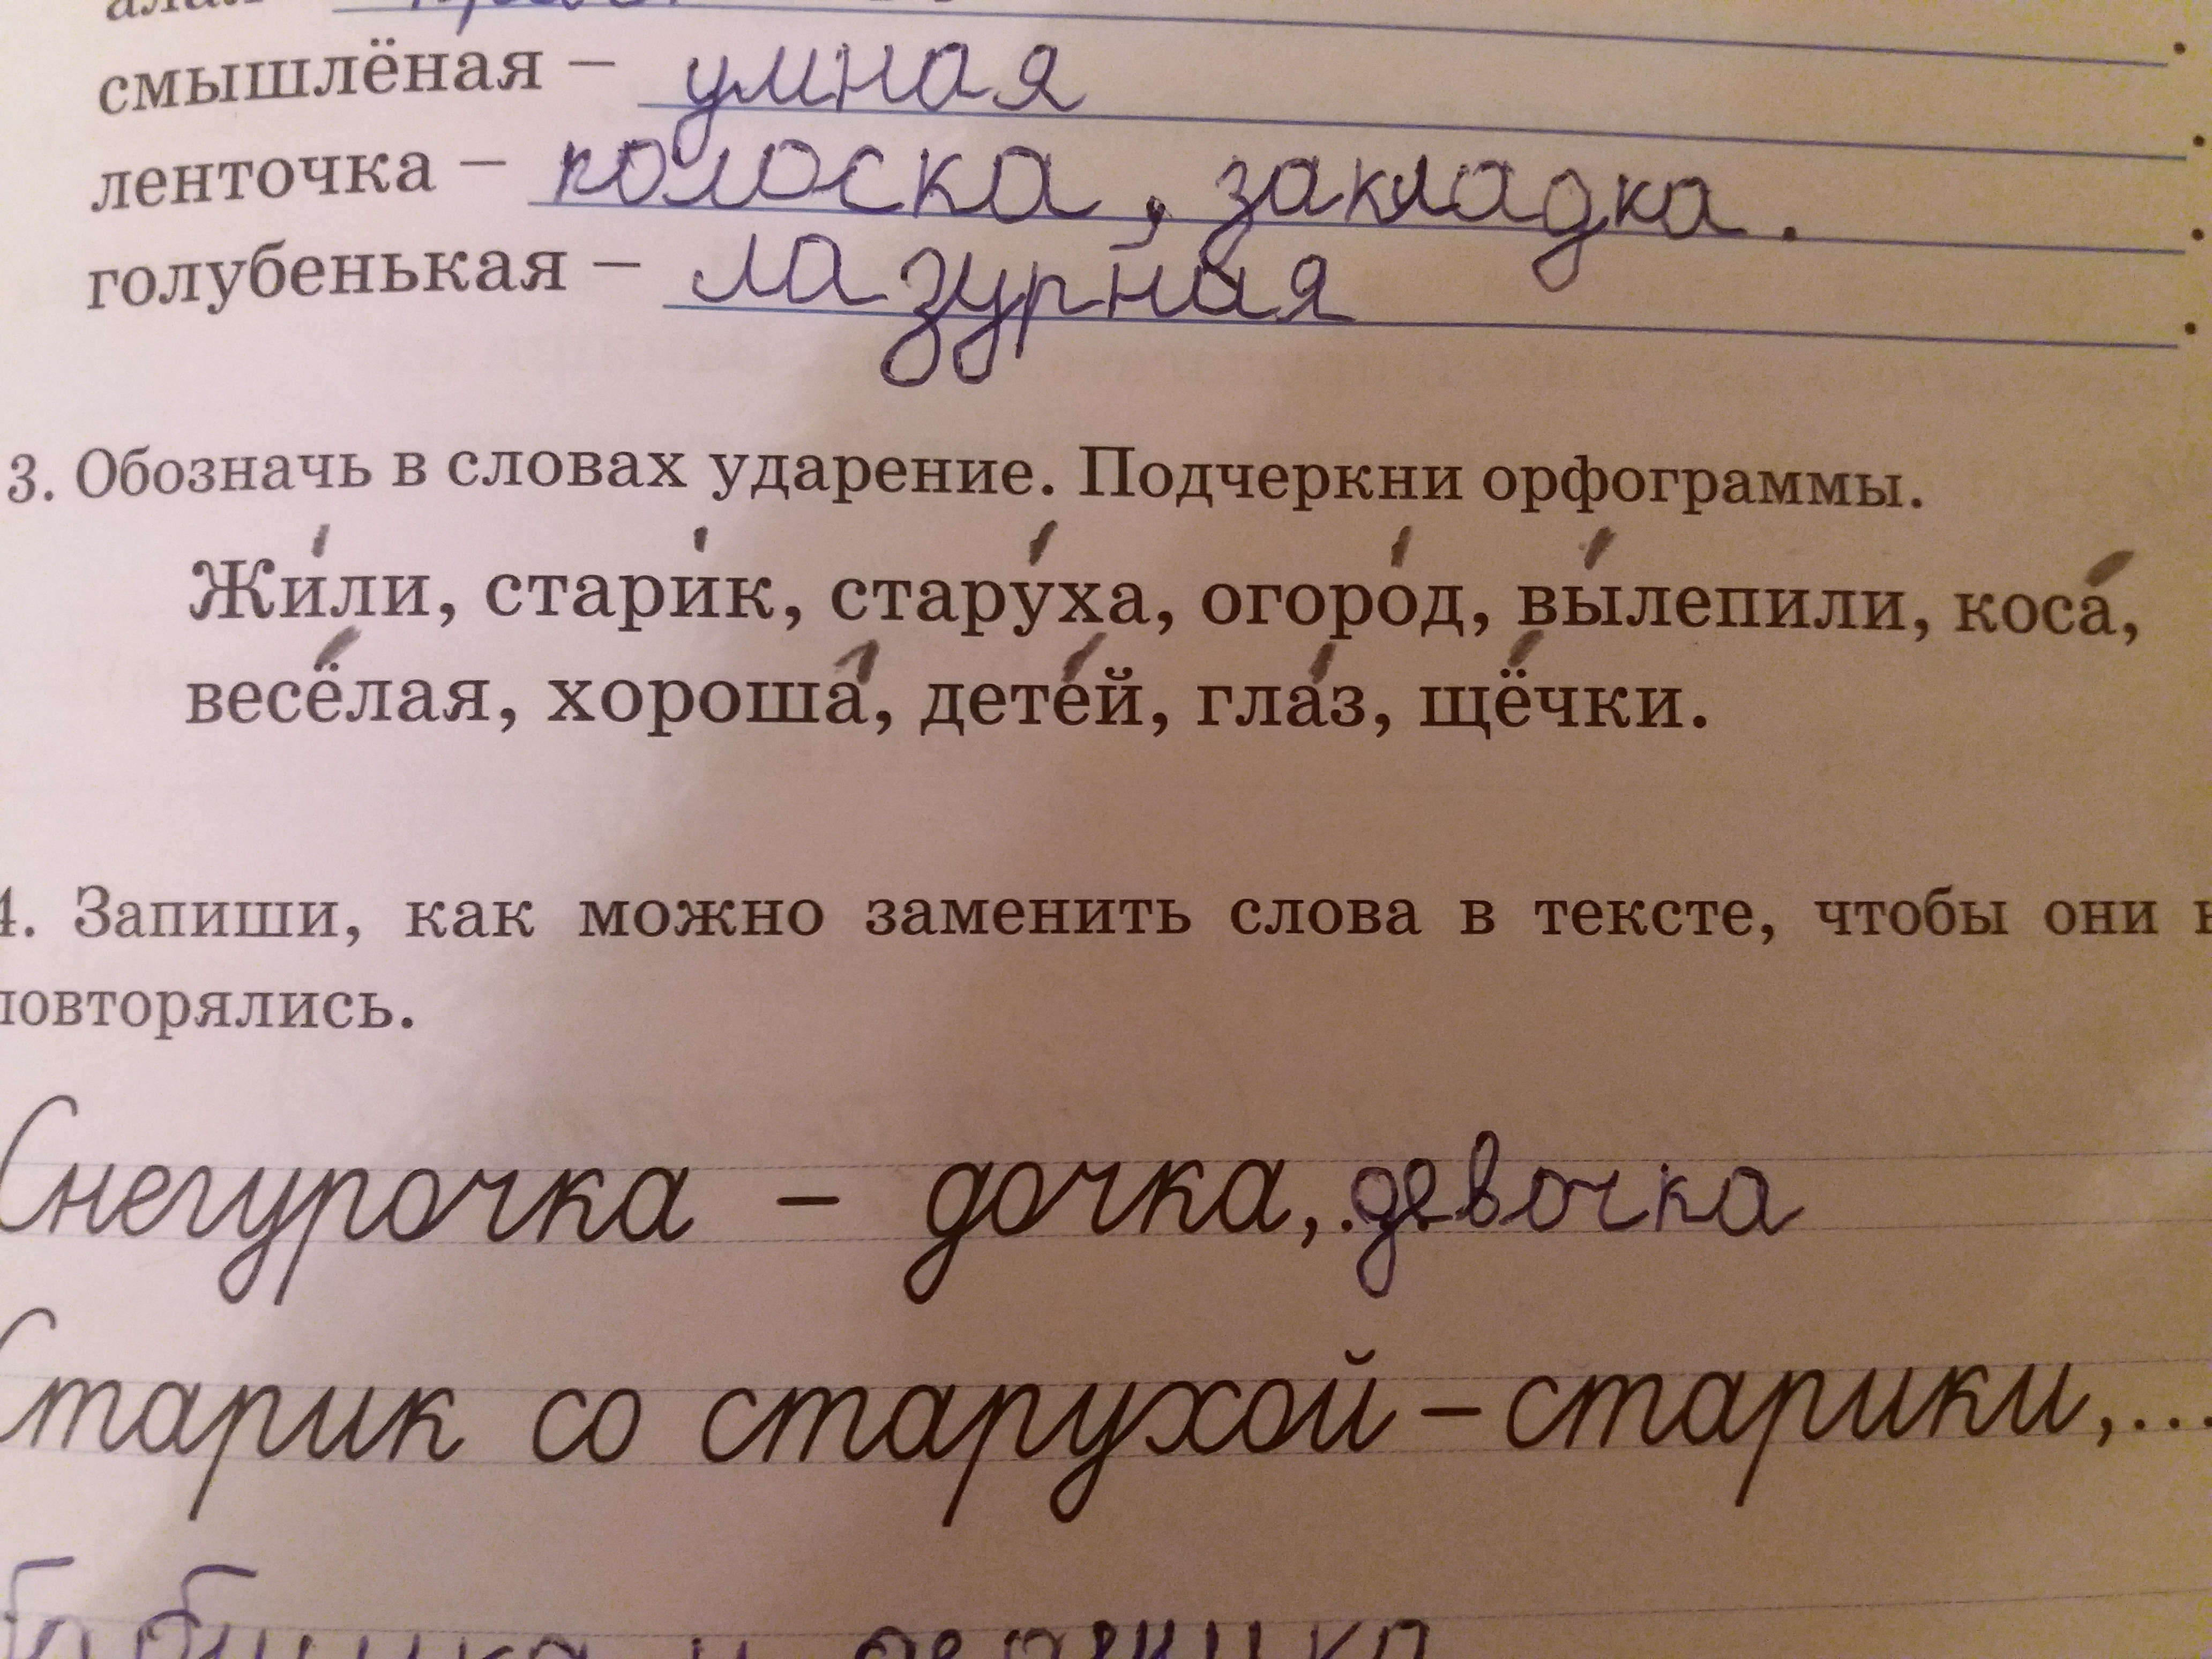 смышлёная – умная .
ленточка – полоска, закладка. .
голубенькая – лазурная .
3. Обозначь в словах ударение. Подчеркни орфограммы.
Жи́ли, стари́к, стару́ха, огоро́д, вы́лепили, коса́,
весёлая, хороша́, дете́й, гла́з, щёчки.
4. Запиши, как можно заменить слова в тексте, чтобы они
повторялись.
Снегурочка – дочка, ... девочка
Старик со старухой – старики, ...
бабушка и дедушка